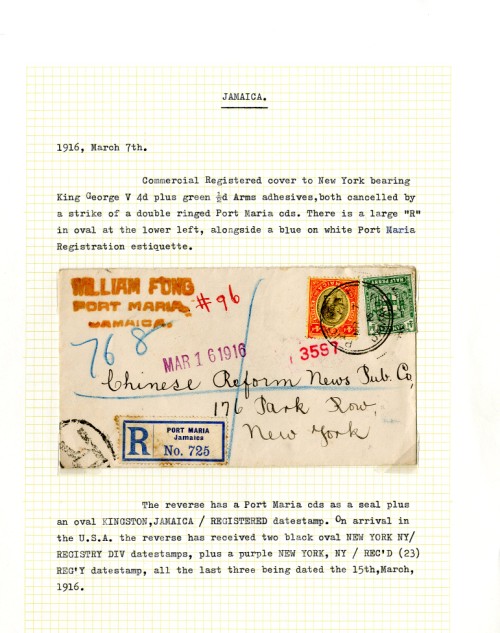 JAMAICA.
1916, March 7th.
Commercial Registered cover to New York bearing
King George V 4d plus green ½d Arms adhesives,both cancelled by
a strike of a double ringed Port Maria cds. There is a large "R"
in oval at the lower left, alongside a blue on white Port Maria
Registration estiquette.
WILLIAM FONG
PORT MARIA,
JAMAICA.
#96
768
MAR 16 1916
3597
HALF PENNY
Chinese Reform News Pub. Co,
176 Park Row,
New York
R
PORT MARIA
Jamaica
No. 725
The reverse has a Port Maria cds as a seal plus
an oval KINGSTON,JAMAICA / REGISTERED datestamp. On arrival in
the U.S.A. the reverse has received two black oval NEW YORK NY/
REGISTRY DIV datestamps, plus a purple NEW YORK, NY / REC'D (23)
REG'Y datestamp, all the last three being dated the 15th,March,
1916.